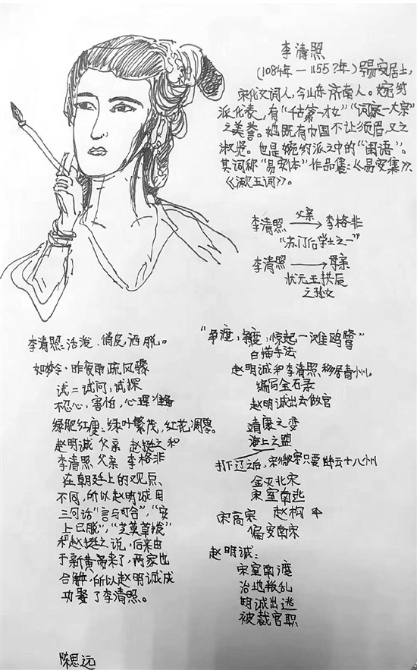 李清照
(1084年—1155?年) 号易安居士,
宋代女词人,今山东济南人。婉约
派代表,有“千古第一才女”“词家一大宗”
之美誉。她既有巾帼不让须眉,又之
淑贤。也是婉约派之中的“闺语”。
其词称“易安体”作品集:《易安集》、
《漱玉词》。
李清照 父亲 李格非
“苏门后学士之一”
李清照 母亲
状元王拱辰
之孙女
李清照:活泼、俏皮、洒脱。
如梦令:昨夜雨疏风骤
试:试问,试探
不忍心,害怕,心理准备
绿肥红瘦:绿叶繁茂,红花凋零。
赵明诚 父亲 赵挺之和
李清照 父亲 李格非
在朝廷上的观点
不同,所以赵明诚用
三句话“言与司合”,“安
上已脱”,“芝芙草拔”
和赵挺之说,后来由
于新黄帝来了,两家也
合解,所以赵明诚成
功娶了李清照。
“争渡,争渡,惊起一滩鸥鹭”
白描手法
赵明诚和李清照,移居青州。
编写金石录
赵明诚出去做官
靖康之变
海上之盟
打下辽之后,宋徽宗只要燕云十八个州
金灭北宋
宋室南逃
宋高宗 赵构
偏安南宋
赵明诚:
宋室南渡
治地叛乱
明诚出逃
被裁官职
陈思远